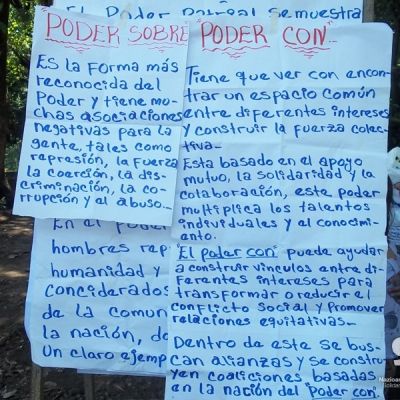 El Poder Patriarcal se muestra
PODER SOBRE
Es la forma más
reconocida del
Poder y tiene mu-
chas asociaciones
negativas para la
gente, tales como
represión, la fuerza
la coerción, la dis-
criminación, la co-
rrupción y el abuso...
En el poder
hombres rep
humanidad y
conciderados
de la comun
la nación, de
Un claro ejemp
"PODER CON"...
Tiene que ver con encon-
trar un espacio común
entre diferentes intereses
y construir la fuerza colec-
tiva...
Esta basado en el apoyo
mutuo, la solidaridad y la
colaboración, este poder
multiplica los talentos
individuales y el conocimi-
ento.
"El poder con" puede ayudar
a construir vinculos entre di-
ferentes intereses para
transformar o reducir el
conflicto Social y Promover
relaciones equitativas...
Dentro de este se bus-
can alianzas y se constru-
yen coaliciones basadas
en la nación del "Poder con".